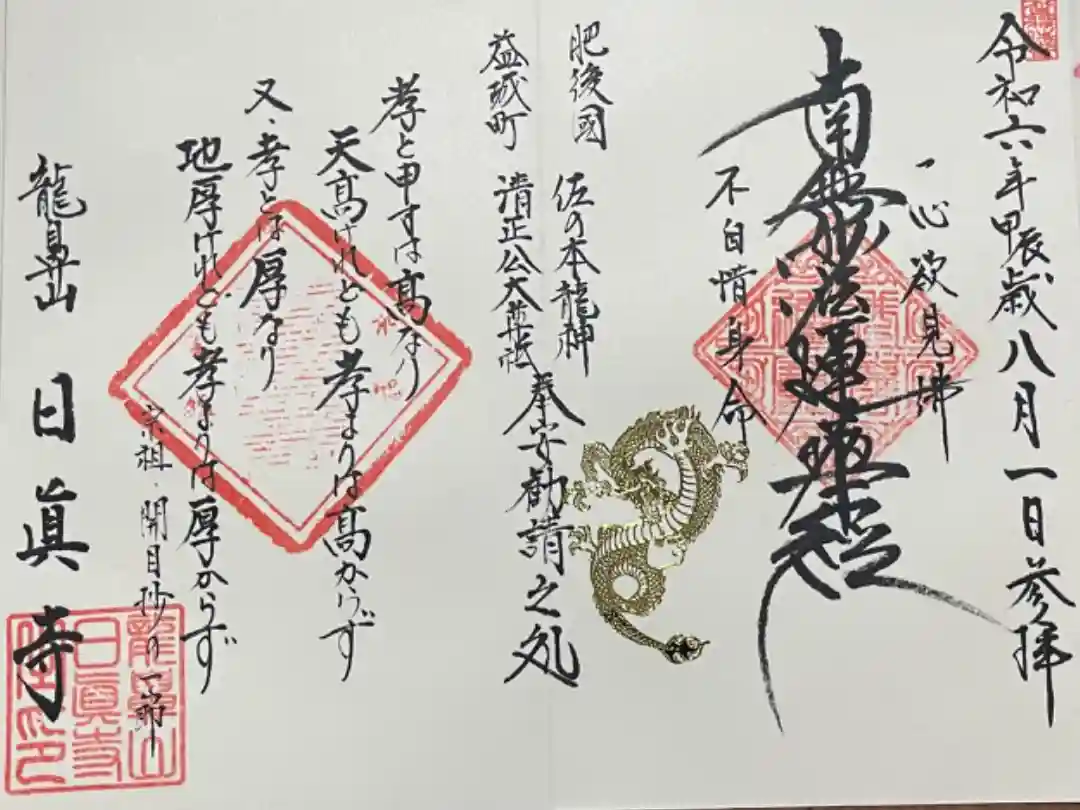 令和六年甲辰歳八月一日参拝
一心欲見佛
南無妙法蓮華経
不自惜身命
肥後國 佐の本龍神
益城町 清正公大菩薩祇
奉安勧請之処
孝と申すは高なり
天高けれども孝よりは高からず
又、孝とは厚なり
地厚けれども孝よりは厚からず
宗祖・開目抄の一節
龍鼻山 日眞寺
龍鼻山
日眞寺